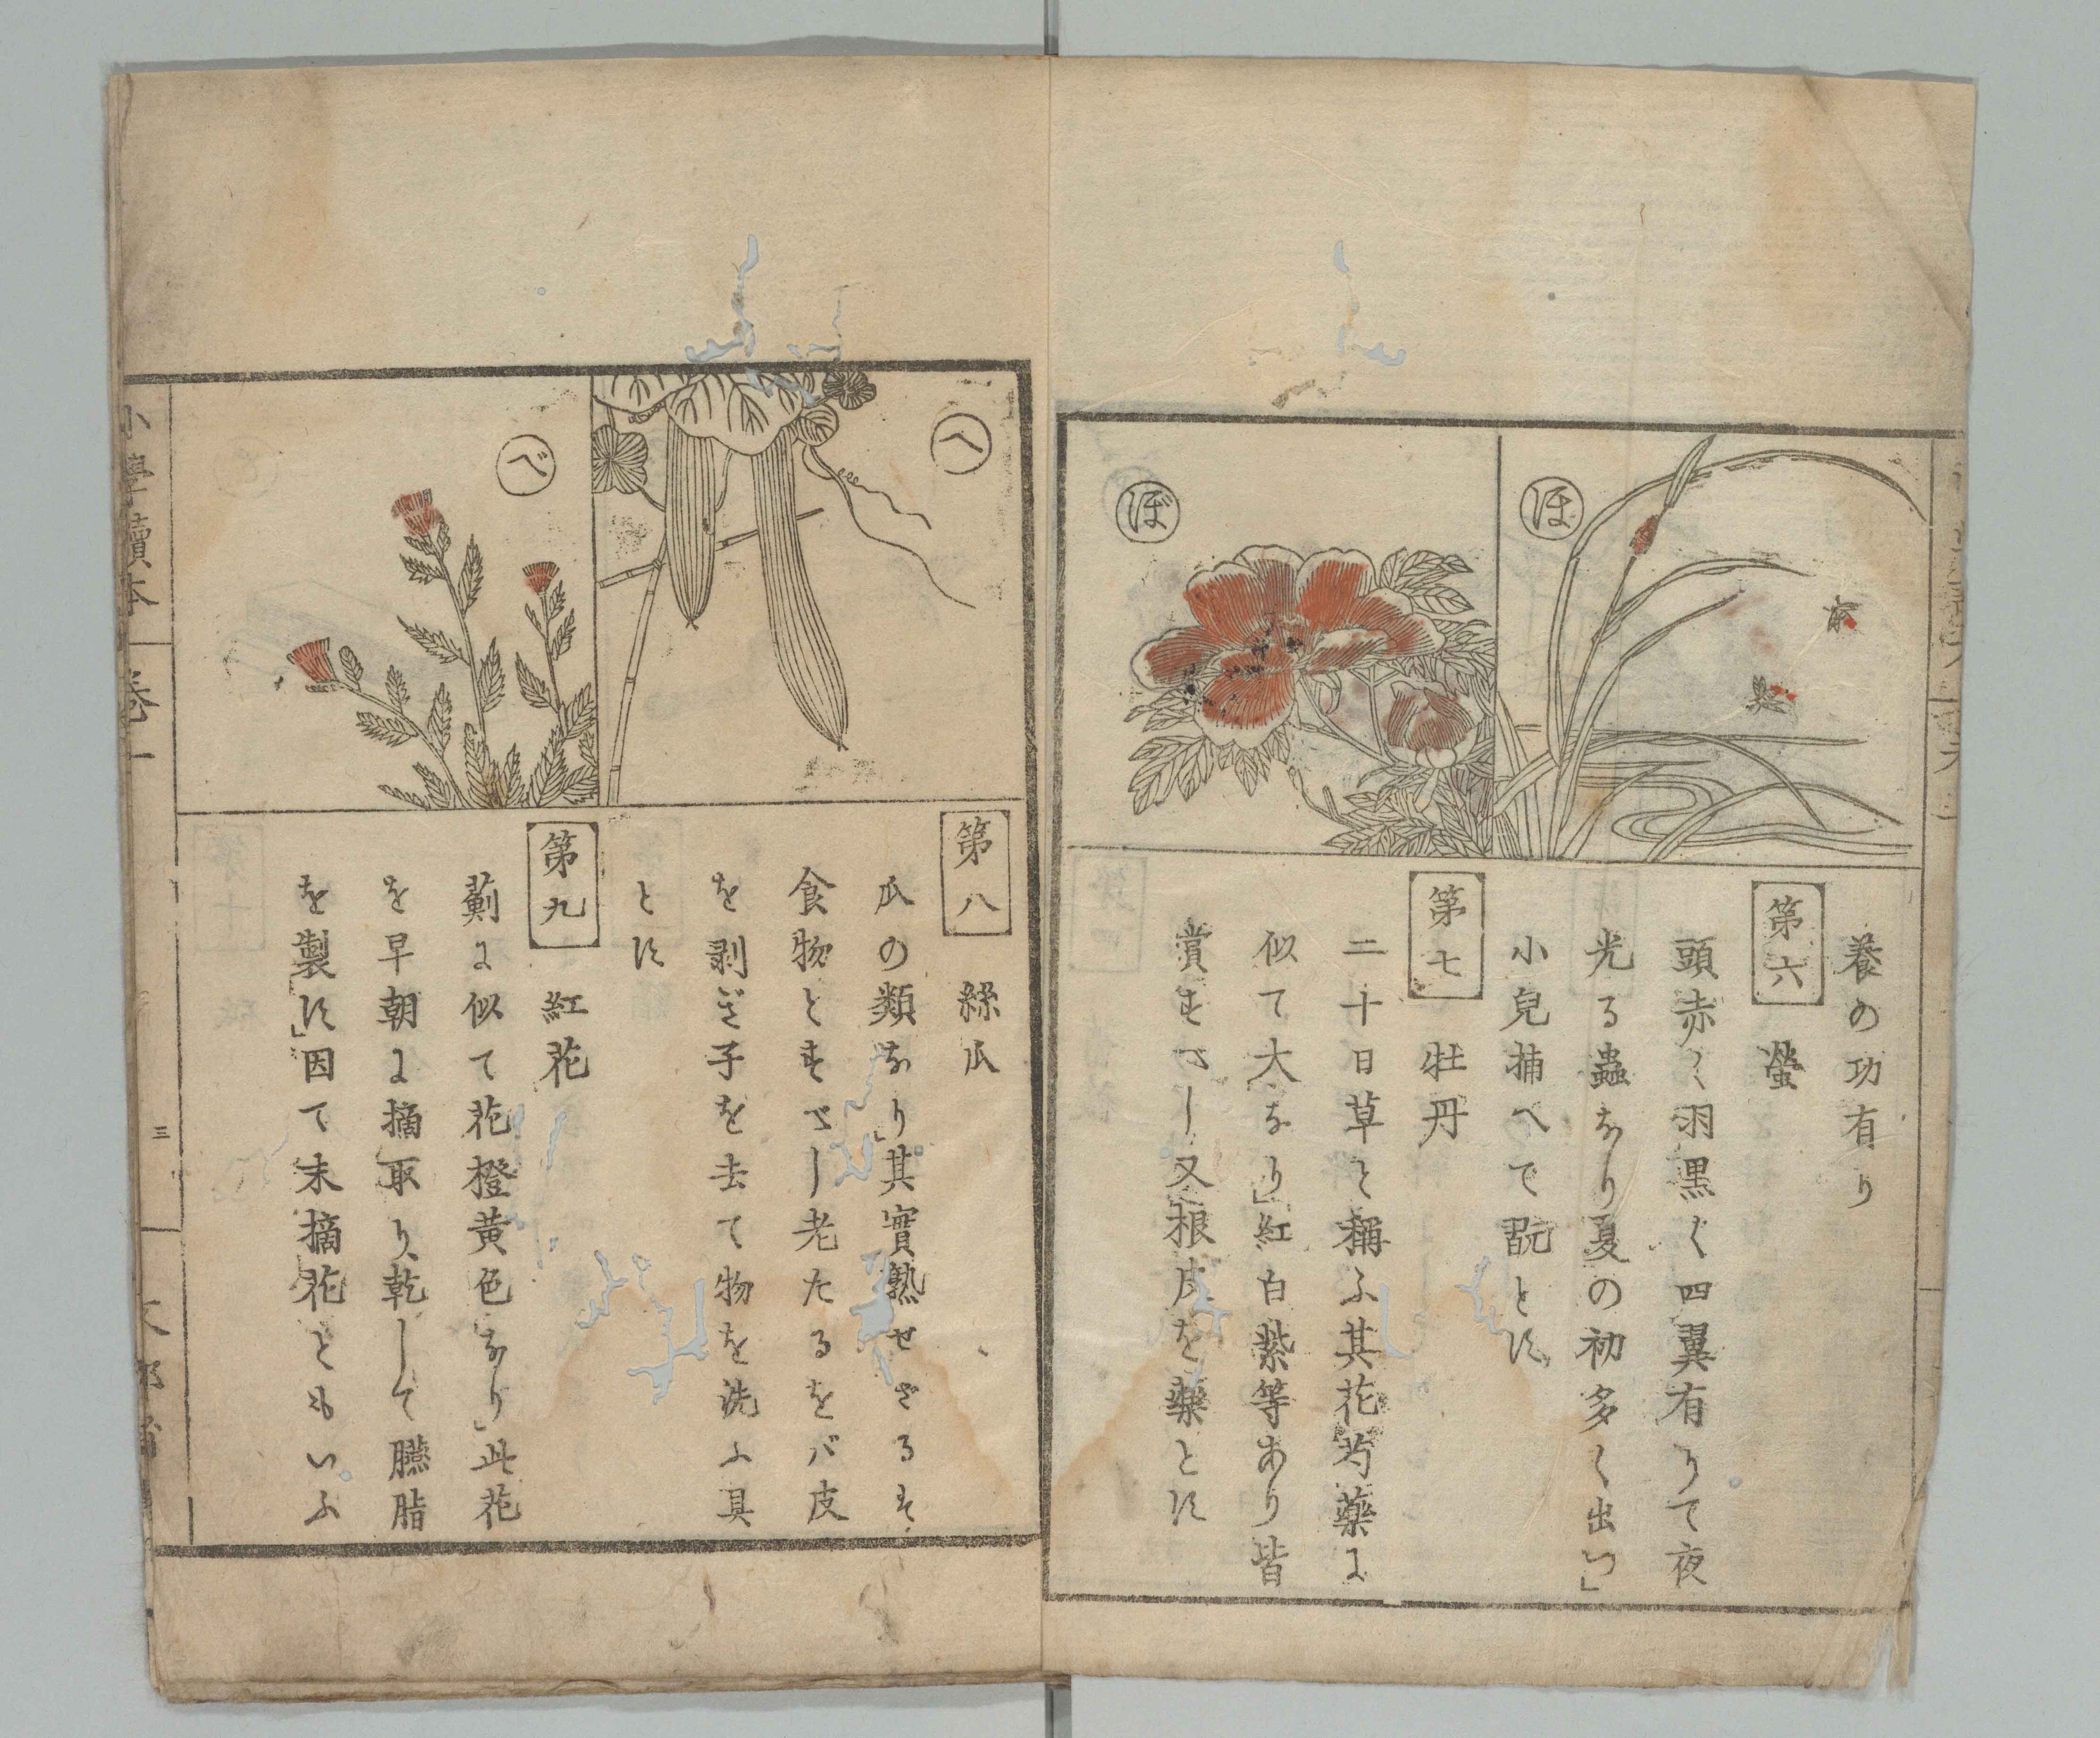 ほ
ぼ
養の功有り
第六 螢
頭赤く羽黒く四翼有りて夜
光る蟲なり夏の初多く出つ」
小兒捕へて翫とす
第七 牡丹
二十日草と稱ふ其花芍藥に
似て大なり」紅白紫等あり皆
賞すべし又根皮を藥とす
へ
べ
第八 絲瓜
瓜の類なり」其實熟せざるは
食物とすべし老たるをバ皮
を剥ぎ子を去て物を洗ふ具
とす
第九 紅花
薊に似て花橙黄色なり」此花
を早朝に摘取り乾して臙脂
を製す」因て末摘花ともいふ
小學讀本 卷一
三